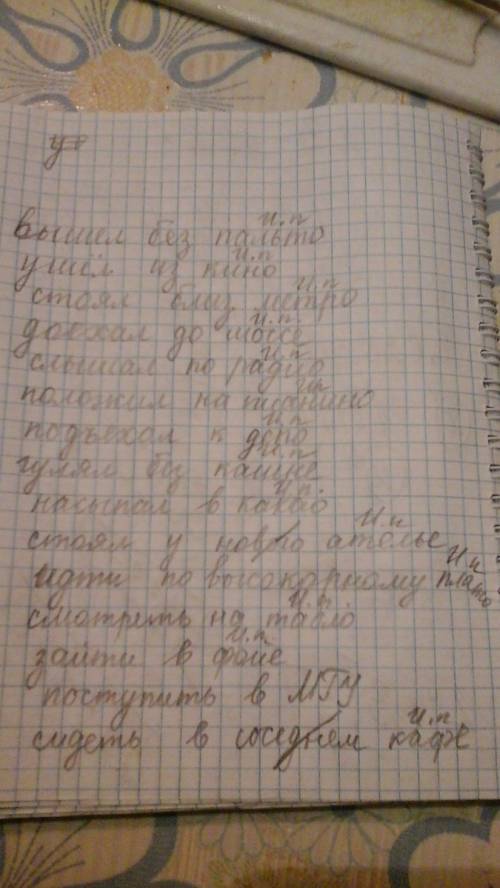 у
И.п
вышел без пальто
И.п
ушёл из кино
И.п
стоял близ метро
И.п
доехал до шоссе
И.п
слышал по радио
И.п
положил на пианино
И.п
подъехал к депо
И.п
гулял без кашне
И.п.
насыпал в какао
И.п
стоял у нового ателье
И.п
идти по высокогорному плато
И.п.
смотреть на табло
И.п
зайти в фойе
поступить в МГУ
И.п
сидеть в соседнем кафе